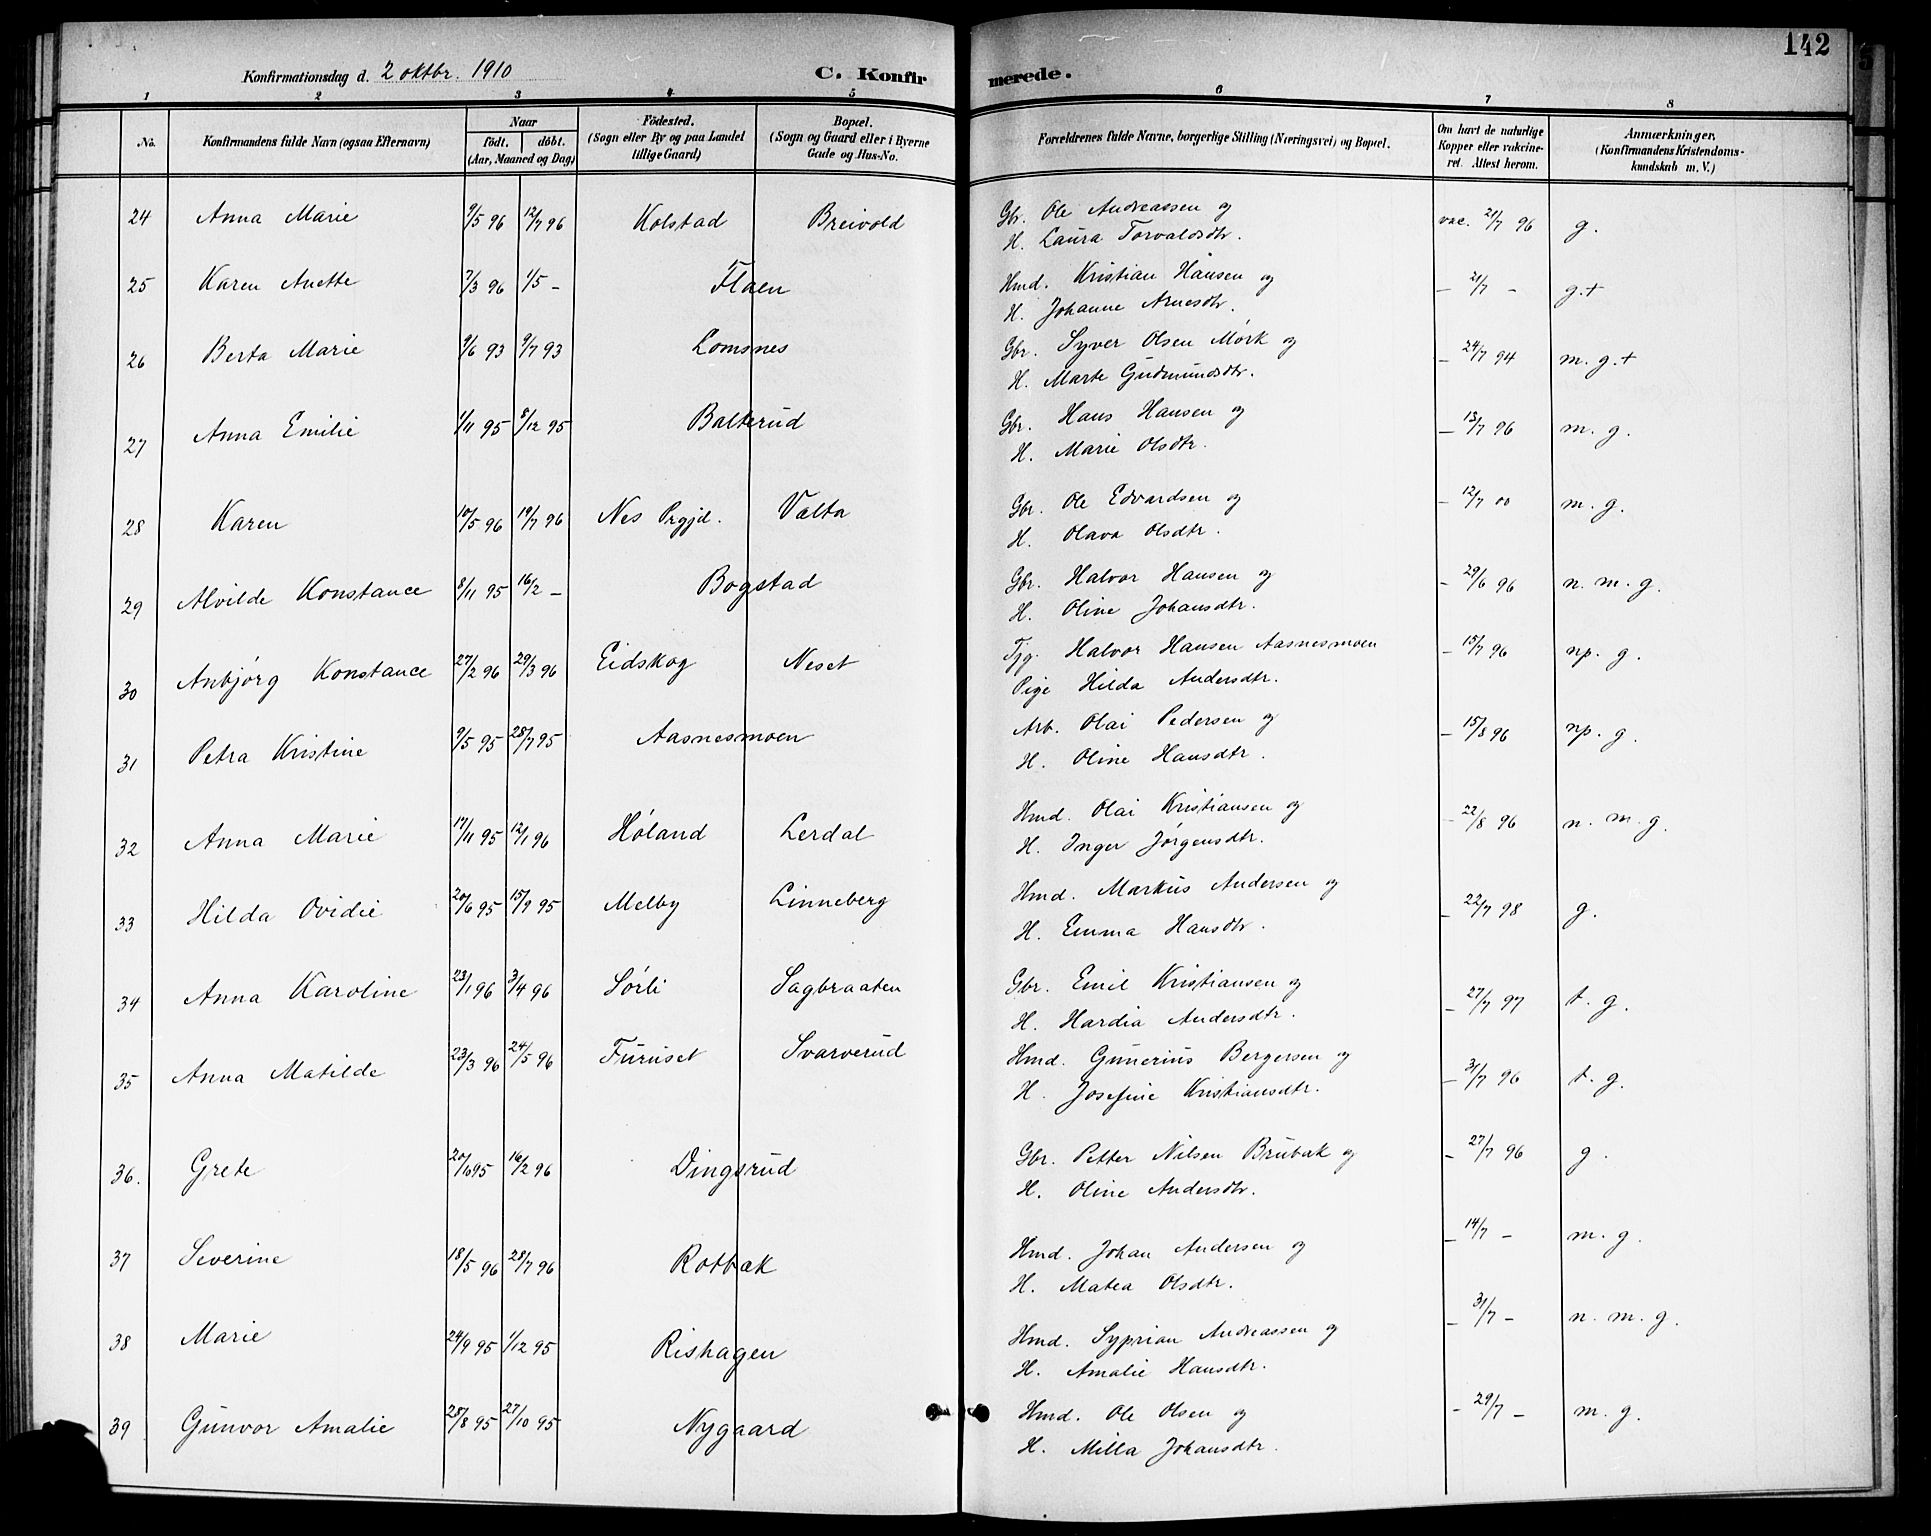 142
Konfirmationsdag d. 2 oktbr. 1910 C. Konfir merede.
1 2 3 4 5 6 7 8
No. Konfirmandens fulde Navn (ogsaa Efternavn) Naar födt. döbt. (Aar, Maaned og Dag) Födested. (Sogn eller By og paa Landet tillige Gaard) Bopæl. (Sogn og Gaard eller i Byerne Gade og Hus-No. Forældrenes fulde Navne, borgerlige Stilling (Næringsvei) og Bopæl. Om havt de naturlige Kopper eller vakcineret. Attest herom. Anmærkninger. (Konfirmandens Kristendomskundskab m. V.)
24 Anna Marie 9/5 96 12/7 96 Kolstad Breivold Gbr. Ole Andreassen og vac. 21/7 96 g.
H. Laura Torvaldsdtr.
25 Karen Anette 7/3 96 1/5 – Flaen Hmd. Kristian Hansen og – 21/7 – g.+
H. Johanne Arnesdtr.
26 Berta Marie 9/6 93 9/7 93 Lomsnes Gbr. Syver Olsen Mörk og – 24/7 94 m. g.+
H. Marte Gudmundsdtr.
27 Anna Emilie 1/11 95 8/12 95 Balterud Gbr. Hans Hansen og – 13/7 96 m. g.
H. Marie Olsdtr.
28 Karen 10/5 96 19/7 96 Nes Prgjd. Valta Gbr. Ole Edvardsen og – 12/7 00 m. g.
H. Olava Olsdtr.
29 Alvilde Konstance 8/11 95 16/2 – Bogstad Gbr. Halvor Hansen og – 29/6 96 n. m. g.
H. Oline Johansdtr.
30 Anbjörg Konstance 27/2 96 29/3 96 Eidskog Neset Tjg. Halvor Hansen Aasnesmoen – 15/7 96 np. g.
Pige Hilda Andersdtr.
31 Petra Kristine 9/5 95 28/7 95 Aasnesmoen Arb. Olai Pedersen og – 15/8 96 np. g.
H. Oline Hansdtr.
32 Anna Marie 17/11 95 12/1 96 Höland Lerdal Hmd. Olai Kristiansen og – 22/8 96 n. m. g.
H. Inger Jörgensdtr.
33 Hilda Ovidie 20/6 95 15/9 95 Melby Linneberg Hmd. Markus Andersen og – 22/7 98 g.
H. Emma Hansdtr.
34 Anna Karoline 23/1 96 3/4 96 Sörli Sagbraaten Gbr. Emil Kristiansen og – 27/7 97 t. g.
H. Hardia Andersdtr.
35 Anna Matilde 23/3 96 24/5 96 Furuset Svarverud Hmd. Gunerius Bergersen og – 31/7 96 t. g.
H. Josefine Kristiansdtr.
36. Grete 95 16/2 96 Dingsrud Gbr. Petter Nilsen Brubak og – 27/7 96 g.
H. Oline Andersdtr.
37 Severine 18/5 96 28/7 96 Rotbak Hmd. Johan Andersen og – 14/7 – m. g.
H. Matea Olsdtr.
38 Marie 24/9 95 1/12 95 Rishagen Hmd. Syprian Andreassen og – 31/7 – n. m. g.
H. Amalie Hansdtr.
39 Gunvor Amalie 28/8 95 27/10 95 Nygaard Hmd. Ole Olsen og – 29/7 – m. g.
H. Milla Johansdtr.